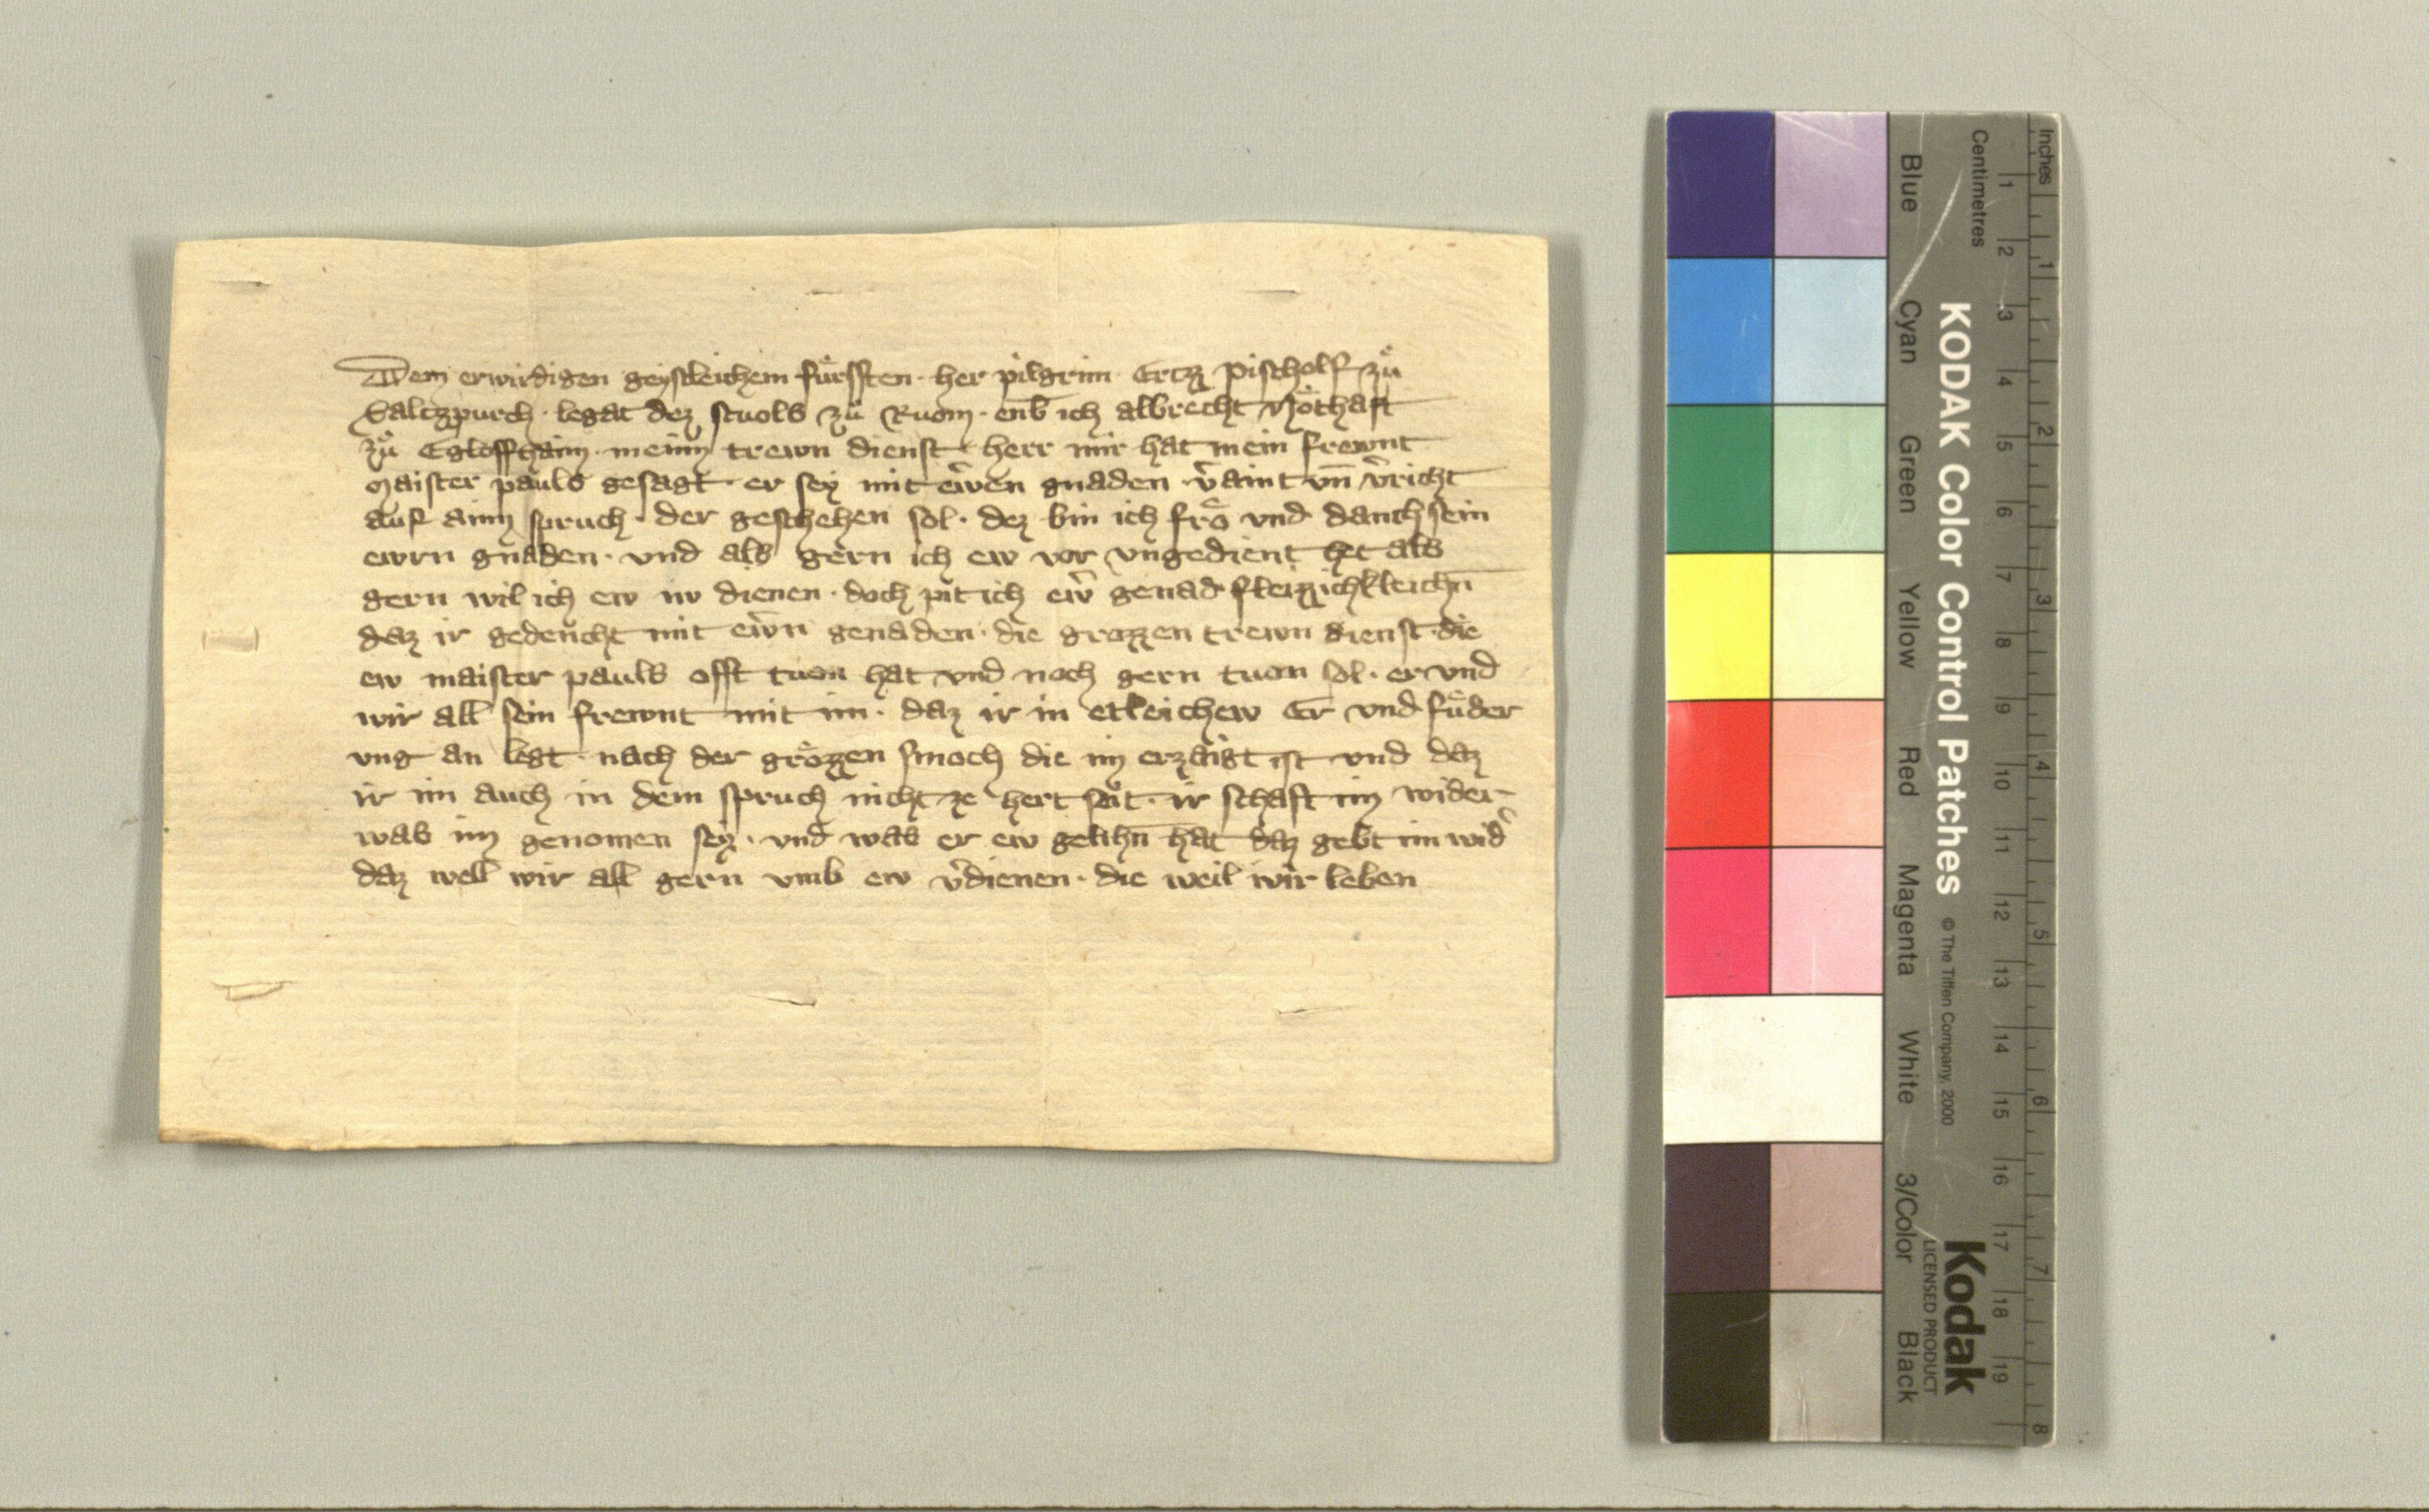 Dem erwirdigen geystleichem fuͤrssten · her pilgrim Ertzz pischolf zuͤ
Saltzpurch · legat dez stuols zuͤ Ruom · enb ich albrecht Nöthaft
zuͤ Egloffhaim meinn trewn dienst herr mir hat mein frewnt
maister pauls gesagt · er sey mit ewͤren gnaden v̄aint vn̄ v̄richt
auf ainn spruch · der geschehen sol · dez bin ich frö vnd danch sein
ewrn gnaden · vnd als gern ich ew vor vngedient het als
gern wil ich ew nv dienen · doch pit ich ew̄ genad fleizzichkleichn̄
daz ir gedencht mit ew̄n genaden · die grozzen trewn dienst · die
ew maister pauls offt tuon hat vnd noch gern tuon sol · er vnd
wir all sein frewnt mit im · daz ir in etleichew Er vnd fuͤder
ung an legt · nach der grözzen smoch die im erzaigt ist vnd daz
ir im auch in dem spruch nicht ze hert seit · ir schaft im wider
was im genomen sey · vnd was er ew gelihn̄ hat daz gebt im wid̄
daz well wir all gern vmb ew v̄dienen · die weil wir leben
Inches
Centimetres
1 2 3 4 5 6 7 8
1 2 3 4 5 6 7 8 9 10 11 12 13 14 15 16 17 18 19
KODAK Color Control Patches © The Tiffen Company, 2000
Kodak
LICENSED PRODUCT
Blue Cyan Green Yellow Red Magenta White 3/Color Black